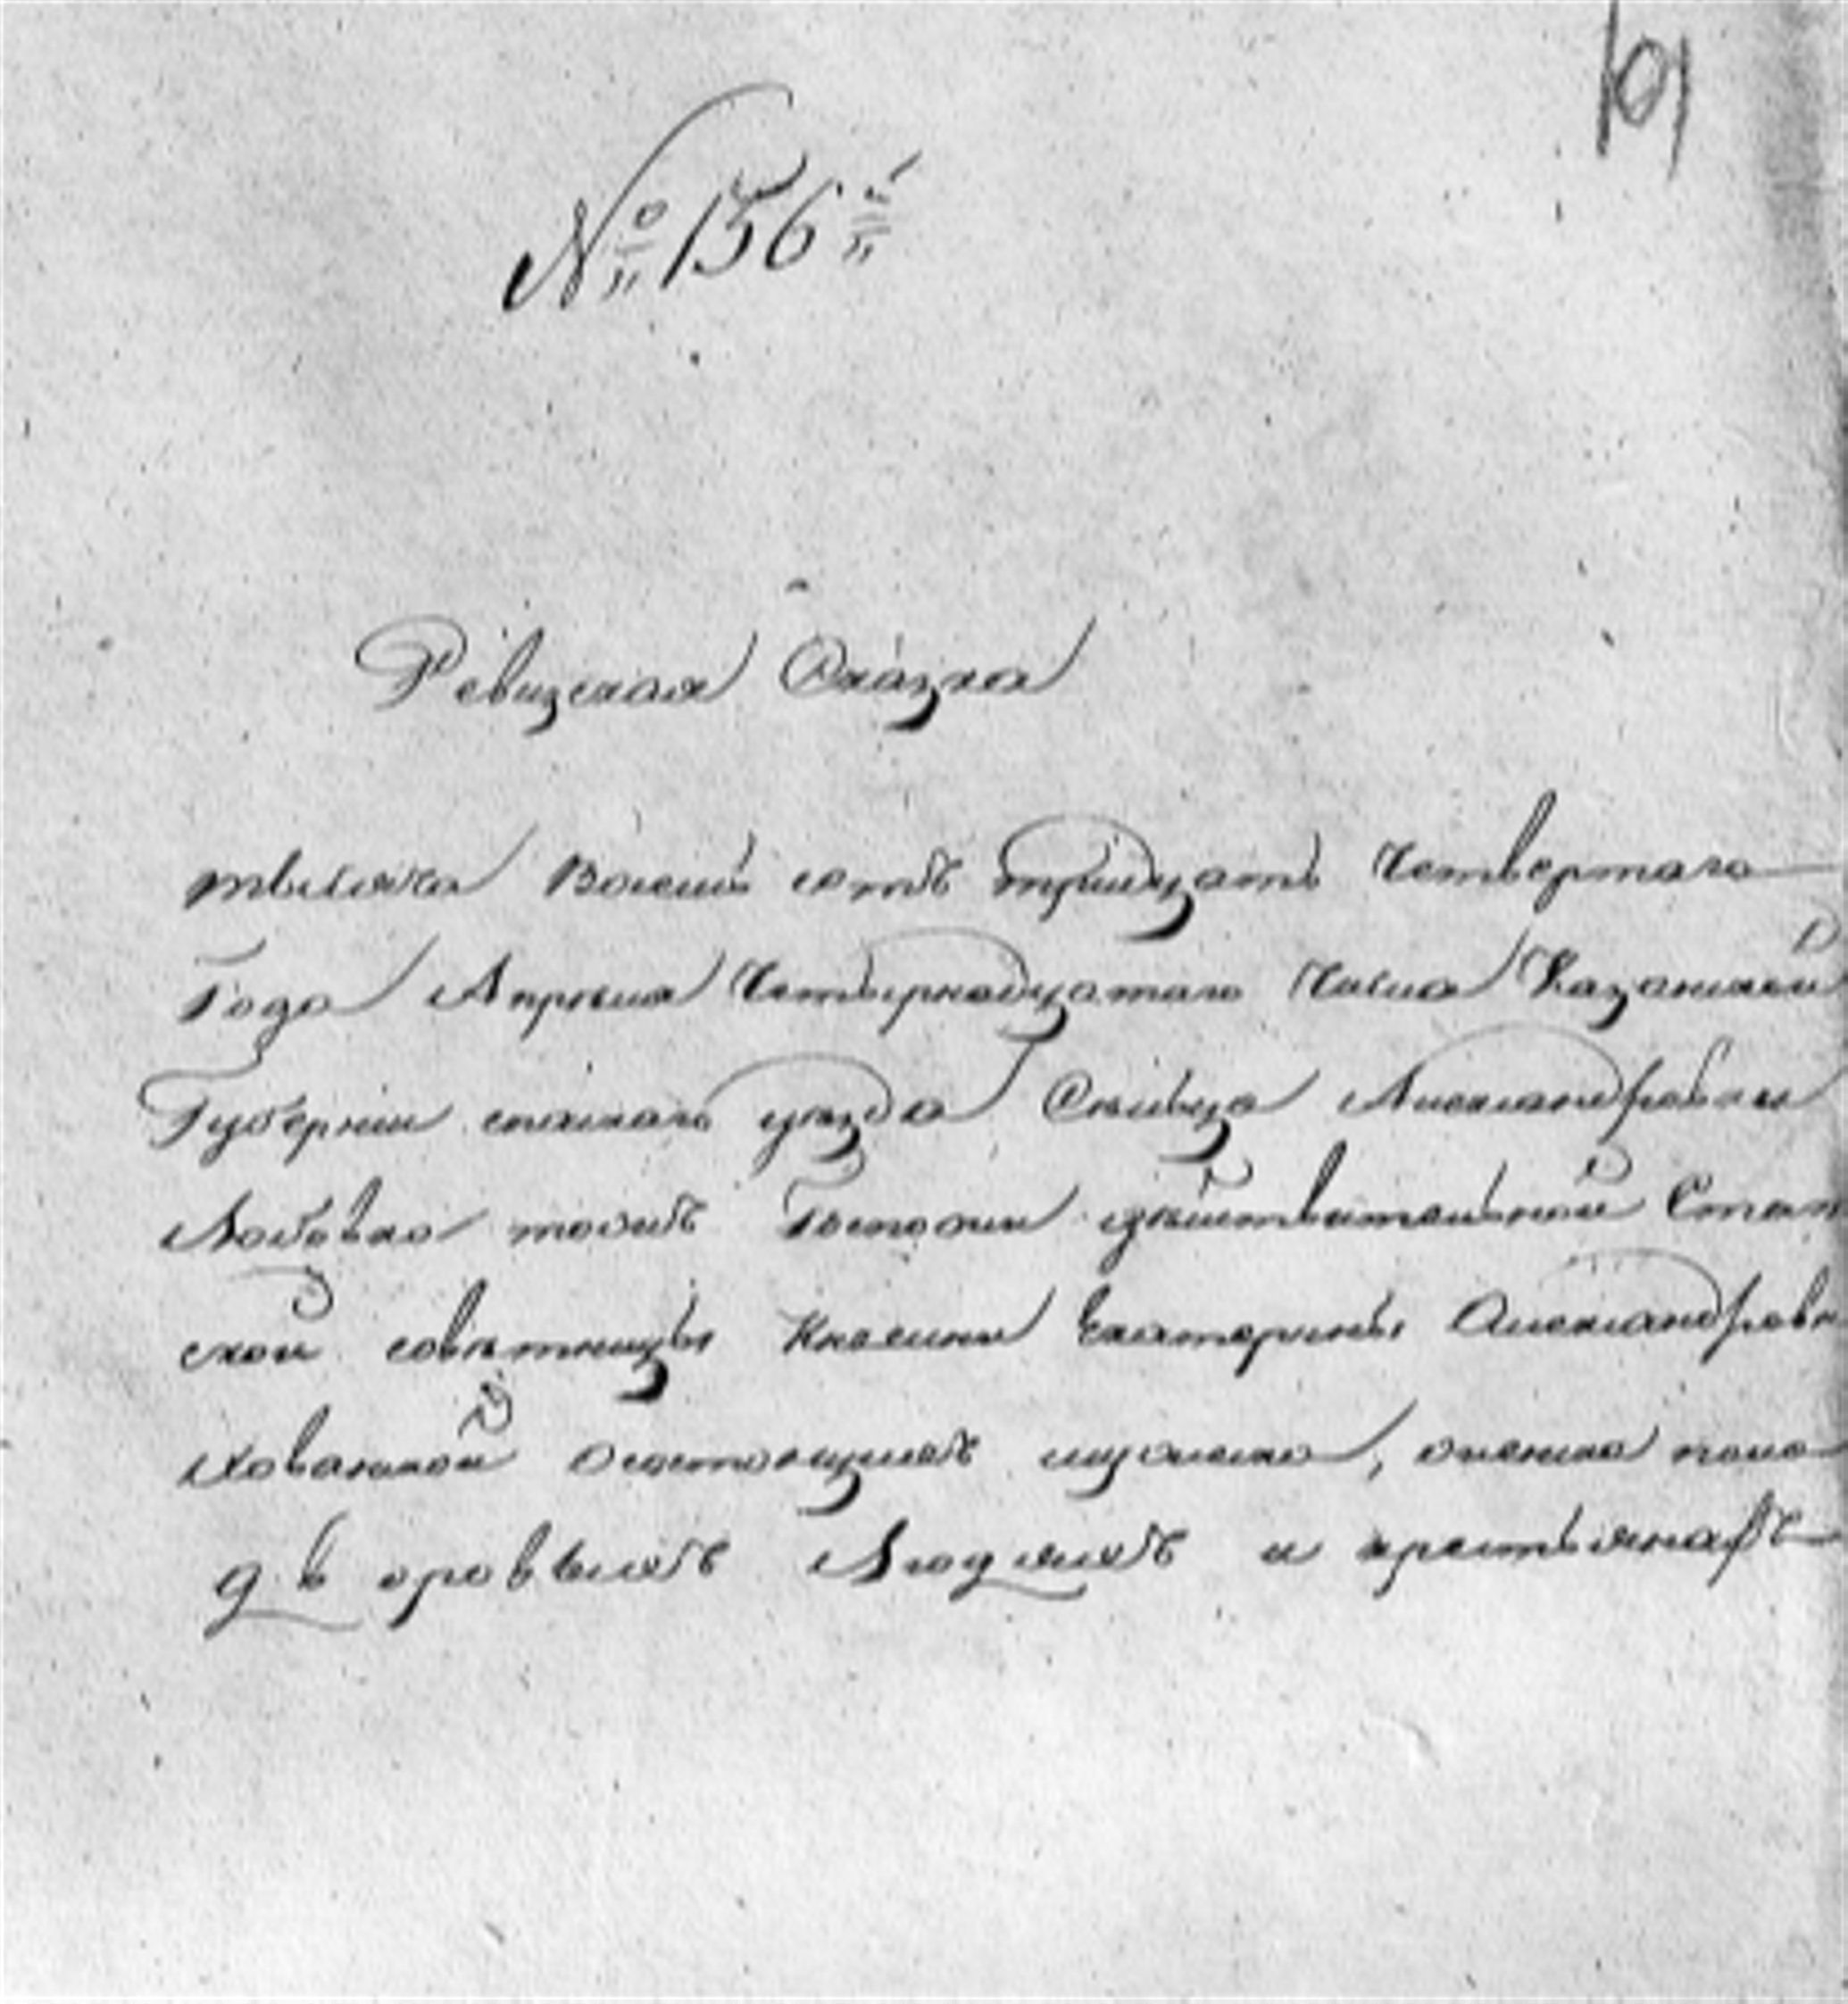 101
№ 156й
Ревизская Сказка
тысяча восемь сотъ тридцать Четвертаго
Года Апреля Четырнадцатаго Числа Казанской
Губернии спаскаго уезда Сельца Александровки
тожъ Госпожи действительной Стат
ской советницы Княгини Екатерины Александровн
Хованской о состоящихъ мужеска, женска пола
дворовыхъ Людяхъ и крестьянахъ